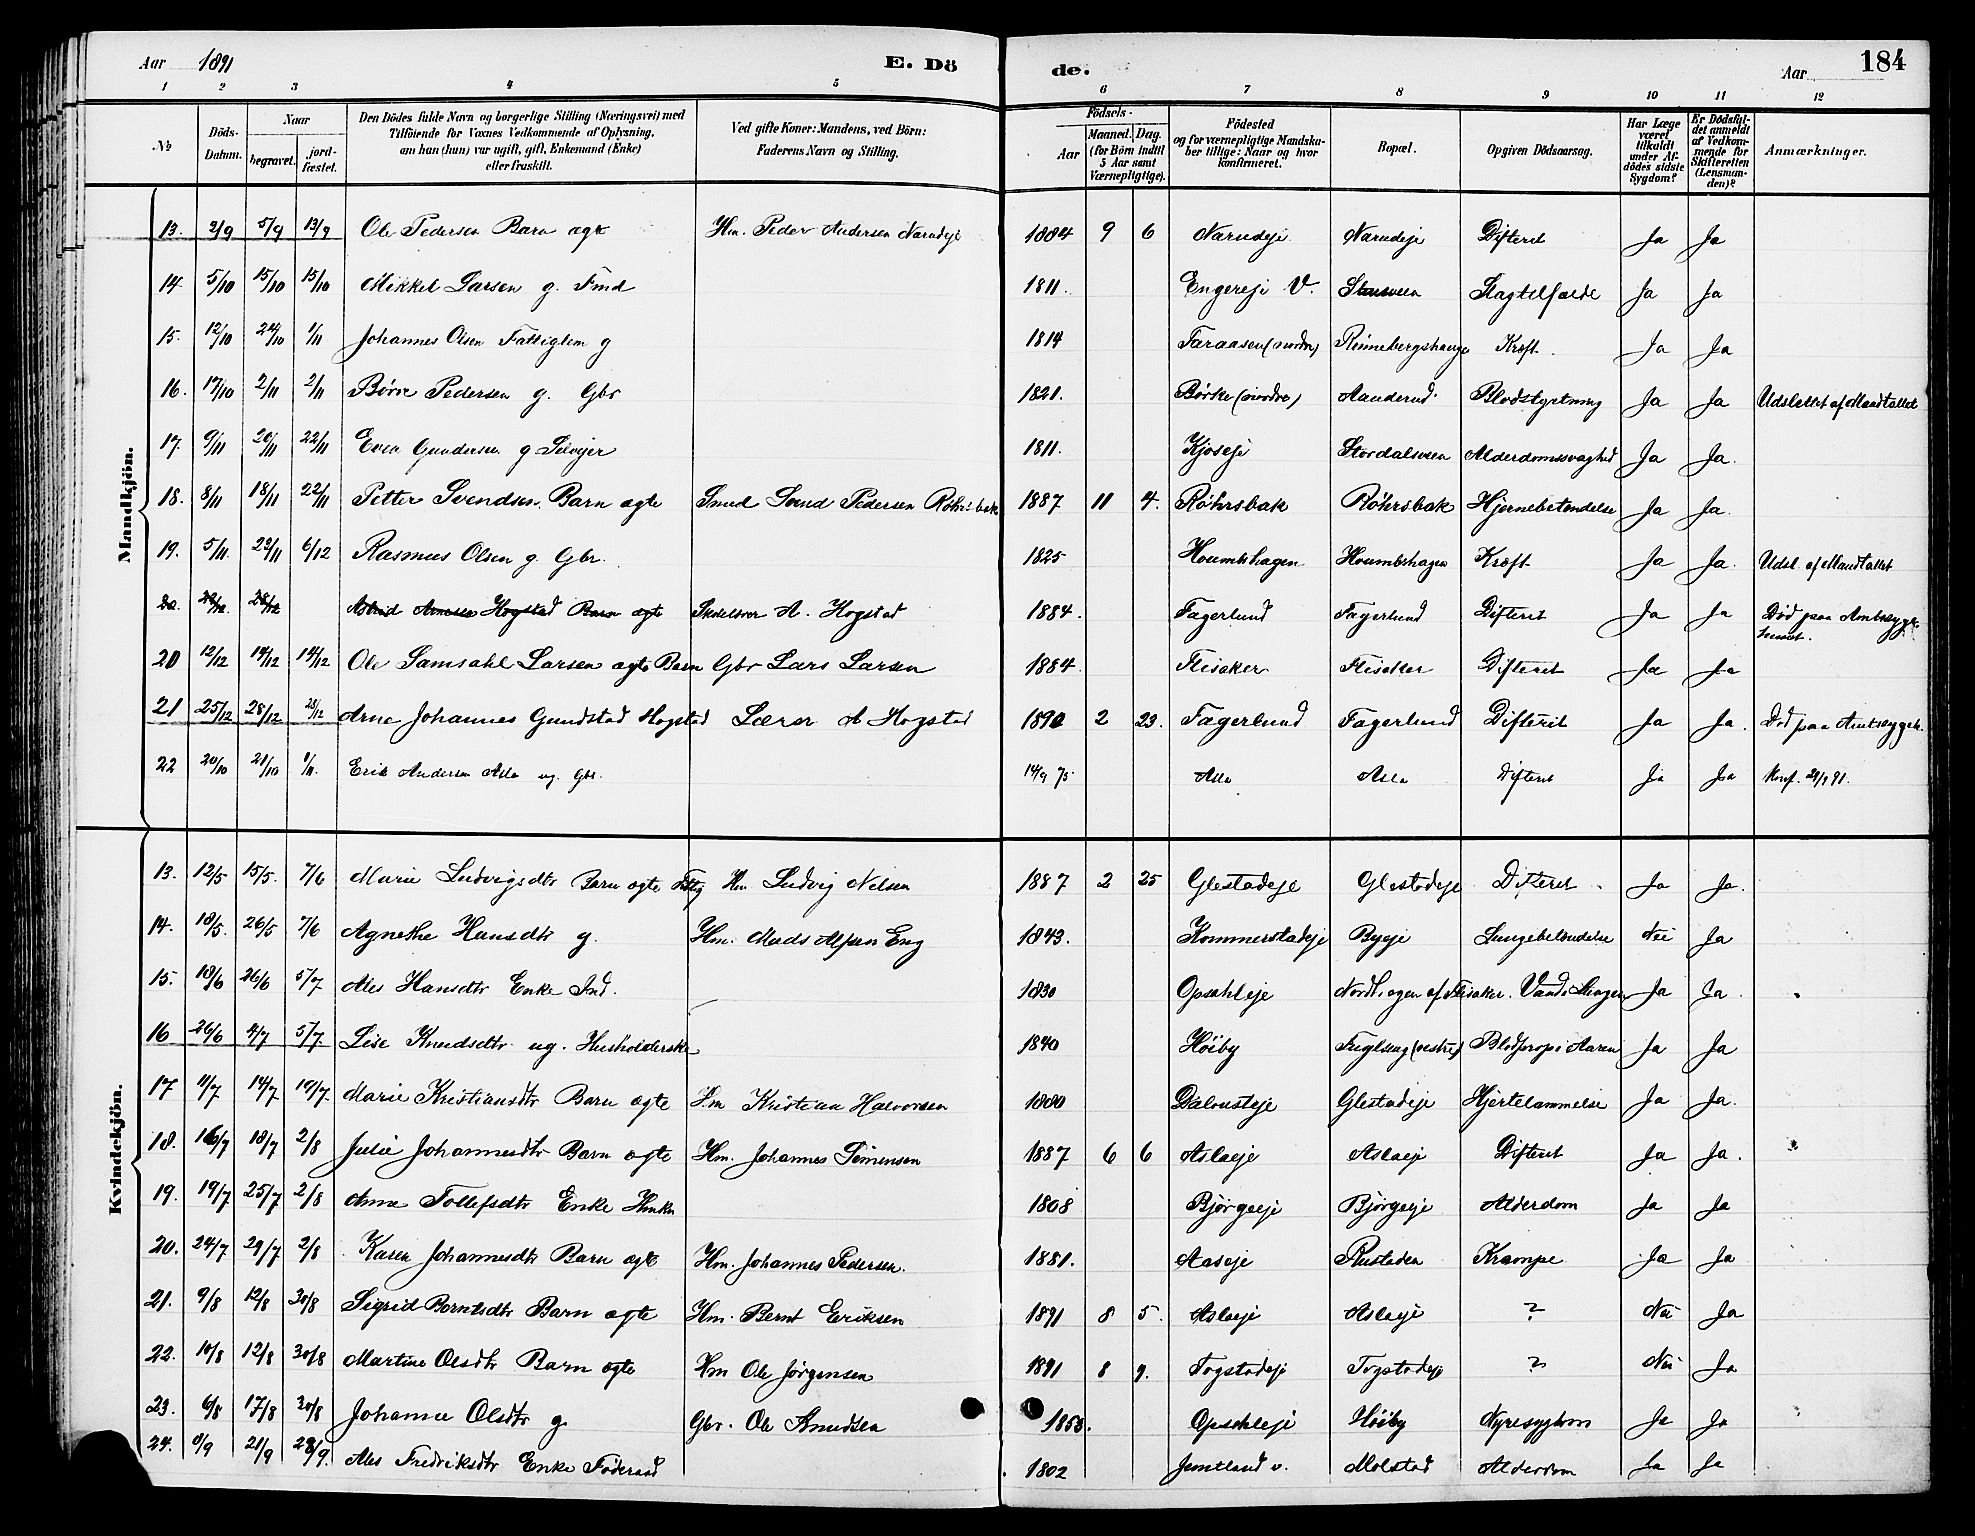 Aar 1891 E. Dö de. Aar 184
1 2 3 4 5 6 7 8 9 10 11 12
№
Döds-Datum.
Naar
begravet.
jord-fæstet.
Den Dödes fulde Navn og borgerlige Stilling (Næringsvei) med
Tilföiende for Voxnes Vedkommende af Oplysning,
om han (hun) var ugift, gift, Enkemand (Enke)
eller fraskilt.
Ved gifte Koner: Mandens, ved Börn:
Faderens Navn og Stilling.
Födsels-
Aar
Maaned. Dag.
(for Börn indtil
5 Aar samt
Værnepligtige).
Födested
og for værnepligtige Mandska-
ber tillige: Naar og hvor
konfirmeret.
Bopæl.
Opgiven Dödsaarsag.
Har Læge
været
tilkaldt
under Af-
dödes sidste
Sygdom?
Er Dödsfal-
det anmeldt
af Vedkom-
mende for
Skifteretten
(Lensman-
den)?
Anmærkninger.
Mandkjön.
13. 2/9 5/9 13/9 Ole Pedersen Barn ægte Hm. Peder Andersen Narudeje 1884 9 6 Narudeje Narudeje Difterit Ja Ja
14. 5/10 15/10 15/10 Mikkel Larsen g. Fmd 1811. Engereje V. Slagtilfælde Ja Ja
15. 12/10 24/10 1/11 Johannes Olsen Fattiglem g 1814 Faraasen (nordre) Rønnebergshauge Kræft. Ja Ja
16. 17/10 2/11 2/11 Børre Pedersen g. Gbr 1821. Børke (nordre) Aanderud Blodstyrtning Ja Ja Udslettet af Mandtallet
17. 9/11 20/11 22/11 Even Gundersen g Selvejer 1811. Kjoseje Stordalsveen Alderdomssvaghed Ja Ja.
18. 8/11 18/11 22/11 Petter Svendsen Barn ægte Smed Svend Pedersen Röhrsbak 1887 11 4. Röhrsbak Röhrsbak Hjernebetændelse Ja Ja.
19. 5/11. 22/11 6/12 Rasmus Olsen g. Gbr. 1825 Houmbshagen Houmbshagen Kræft Ja Ja. Udsl. af Mandtallet
20. Hogstad Barn ægte Skolelærer A. Hogstad 1884. Fagerlund Fagerlund Difterit Ja Ja Död paa Amtssyge-
huset.
20 12/12 14/12 14/12 Ole Samsahl Larsen ægte Barn Gbr Lars Larsen 1884. Flisaker Flisaker Difterit Ja Ja
21 25/12 28/12 28/12 Arne Johannes Gundstad Hogstad Lærer A Hogstad 1890 2 23. Fagerlund Fagerlund Difterit Ja Ja. Död paa Amtssygeh.
22 20/10 21/10 1/11. Erik Andersen Asla ug. Gbs. 14/9 75. Asla Asla Difterit Ja Ja Konf. 91.
Kvindekjön.
13. 12/5 15/5. 7/6 Marie Ludvigsdtr Barn ægte Hm Ludvig Nilsen 1887 2 25 Glestadeje Glestadeje Difterit. Ja Ja.
14. 18/5. 26/5 7/6 Agnethe Hansdtr g. Hm. Mads Alfsen Eng 1843. Kommerstadeje Bygeje Lungebetændelse Nei Ja
15. 18/6 26/6 5/7 Ales Hansdtr Enke Ind. 1830 Opsahleje Nordhagen af Flisaker. Vand i Hagen Ja Ja.
16 26/6 4/7 5/7. Lise Knudsdtr ug. Husholderske 1840 Höiby Fuglseng (vestre) Blodprop i Aaren Ja Ja
17 11/7 14/7 19/7 Marie Kristiansdtr Barn ægte Hm Kristian Halvorsen 1880 Dalbusteje Glestadeje Hjertelammelse Ja Ja.
18. 16/7 18/7 2/8 Julie Johannesdtr Barn ægte Hm. Johannes Simensen 1887 6 6 Aslaeje Aslaeje Difterit Ja Ja.
19. 19/7 25/7 2/8 Anne Tollefsdtr Enke Hmke 1808 Bjørgeeje Bjørgeeje Alderdom Ja Ja
20. 24/7 29/7 2/8 Karen Johannesdtr Barn ægte Hm. Johannes Pedersen. 1881. Aaseje Rustaden Krampe Ja Ja
21. 9/8 12/8 30/8 Sigrid Berntsdtr Barn ægte Hm. Bernt Eriksen 1891 8 5. Aslaeje Aslaeje ? Nei Ja
22. 10/8 12/8 30/8 Martine Olsdtr Barn ægte Hm Ole Jørgensen 1891 8 9. Togstadeje Togstadeje ? Nei Ja
23. 6/8 17/8 30/8 Johanne Olsdtr g. Gbr. Ole Knudsen 1853. Opsahleje Höiby Nyresygdom Ja Ja
24. /9 21/9 28/9. Ales Fredriksdtr Enke Föderaad 1802 Jemtland v. Molstad Alderdom Ja Ja